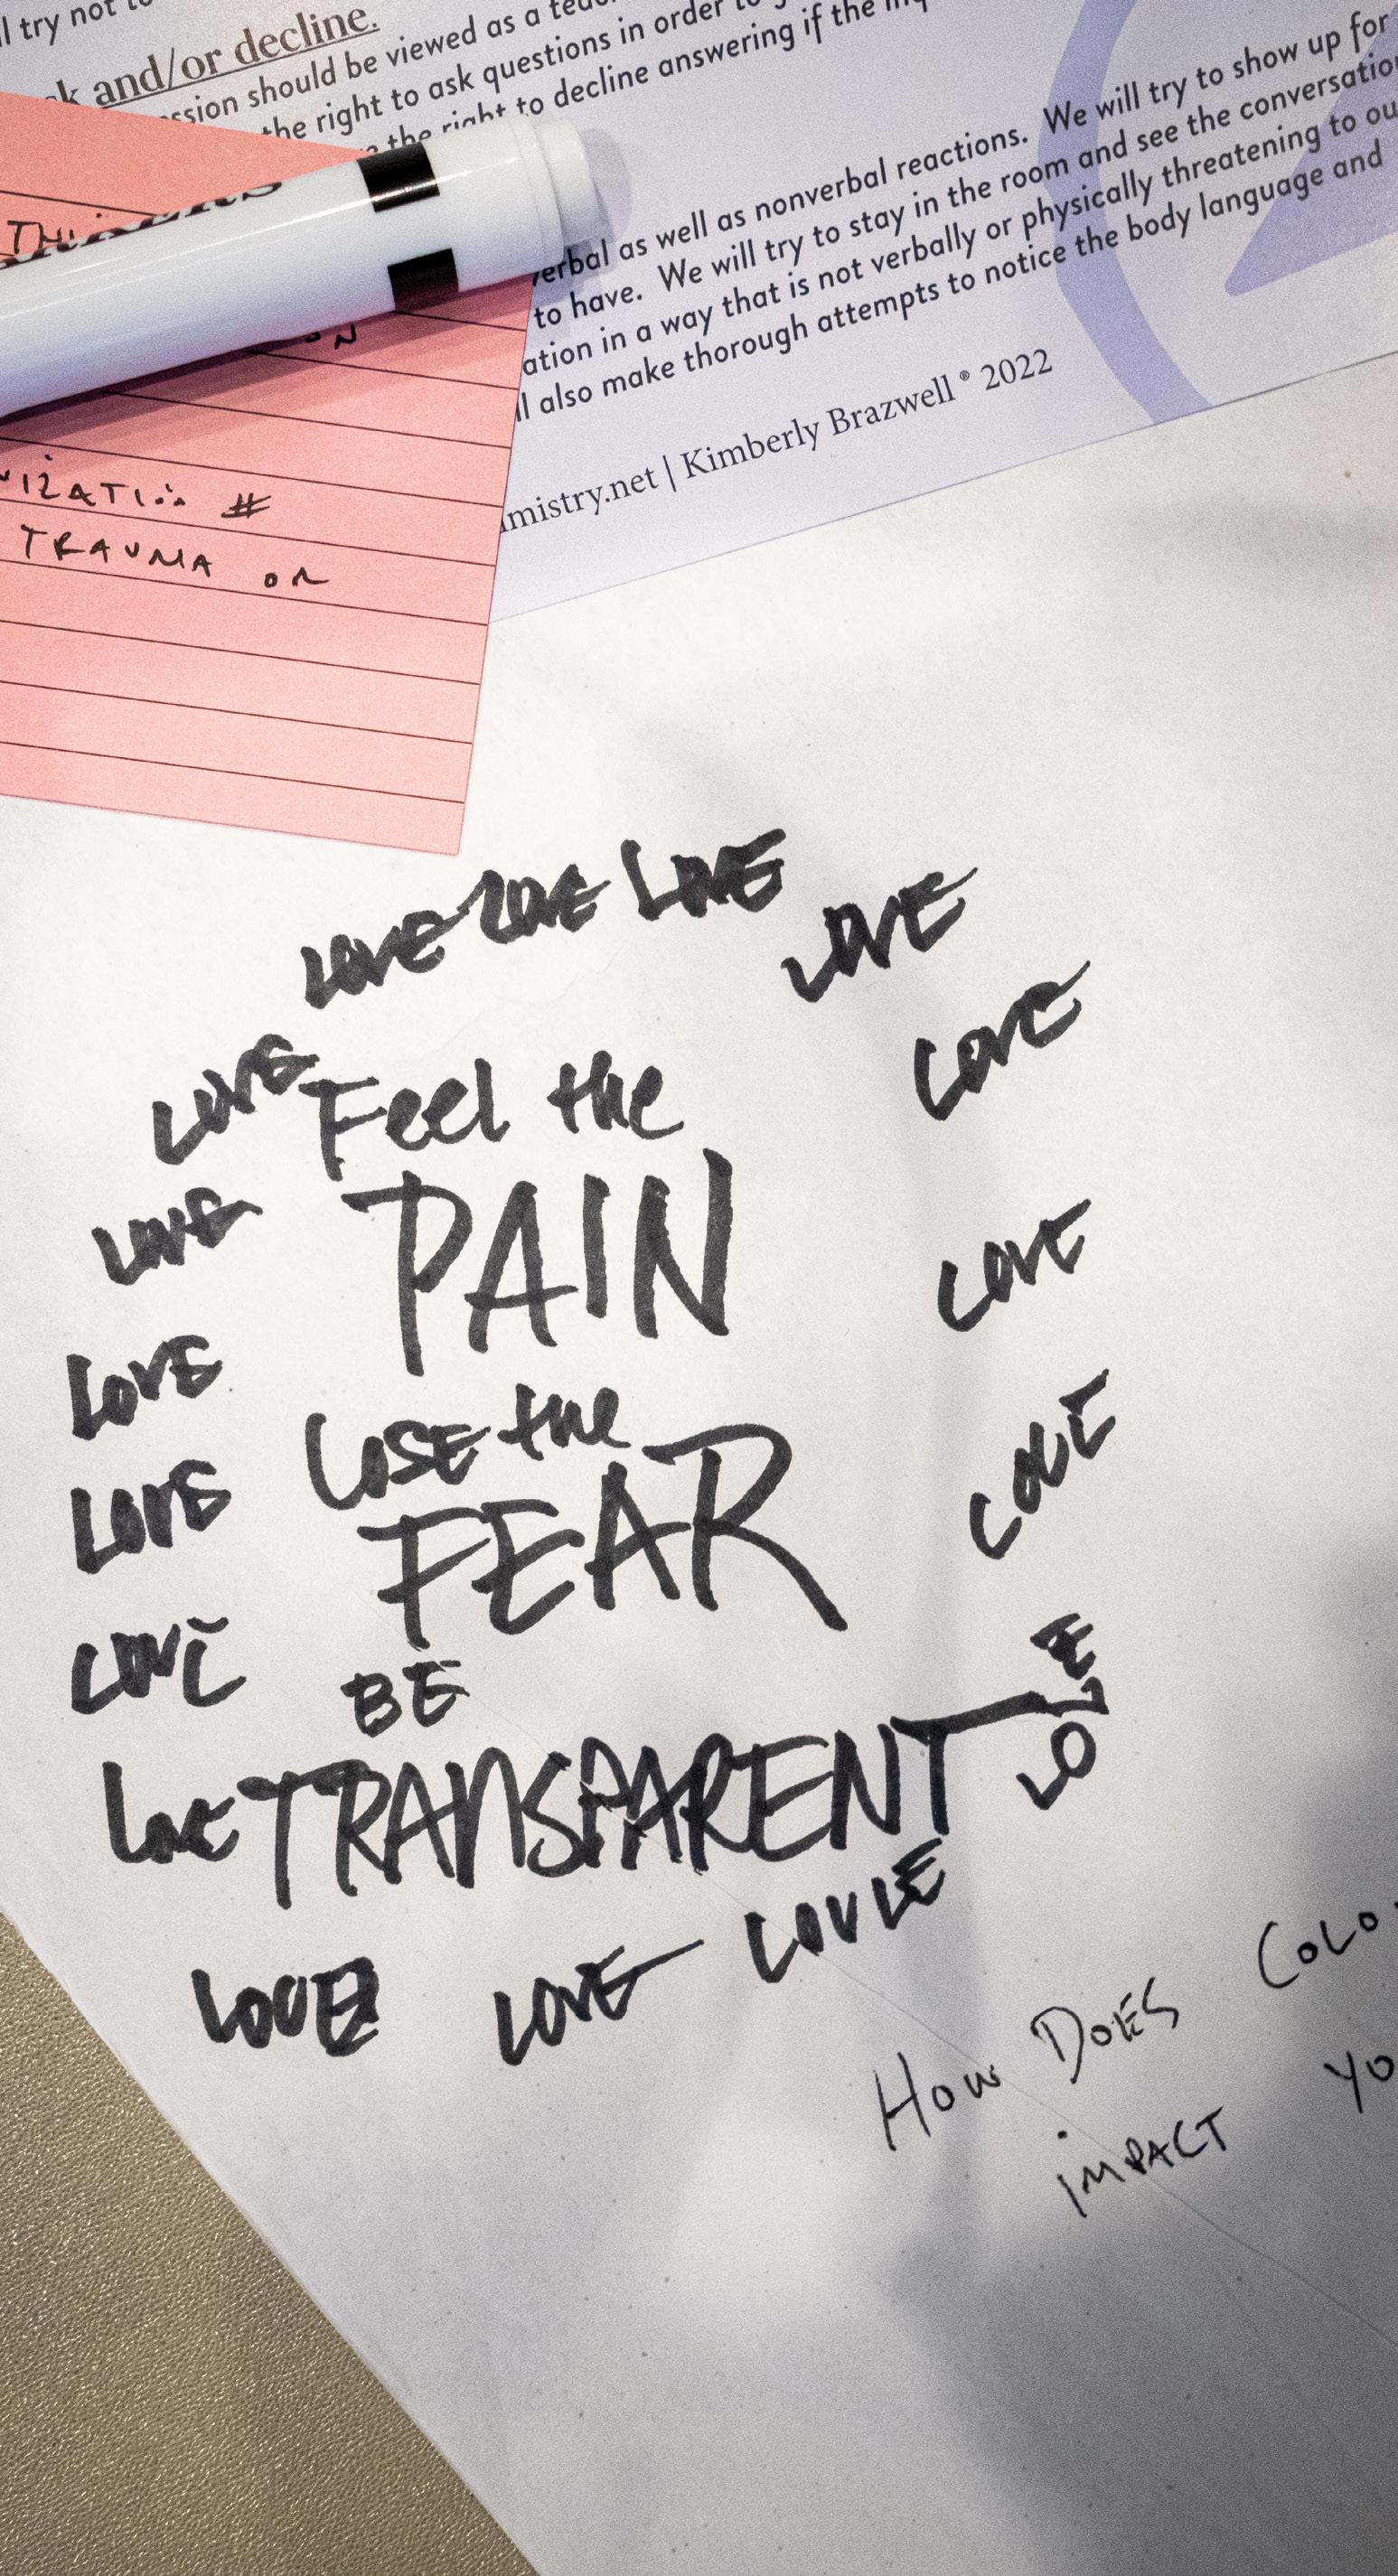 ll try not to
k and/or decline.
ssion should be viewed as a
the right to ask questions in order to
the right to decline answering if the
erbal as well as nonverbal reactions. We will try to show up for
to have. We will try to stay in the room and see the conversation
ation in a way that is not verbally or physically threatening to ou
ll also make thorough attempts to notice the body language and
mistry.net | Kimberly Brazwell® 2022
IZATION #
TRAUMA OR
LOVE LOVE LOVE
LOVE
LOVE
LOVE
Feel the
PAIN
LOVE
LOVE
LOVE
Lose the
LOVE
FEAR
LOVE
LOVE
BE
LOVE
LOVE TRANSPARENT
LOVE LOVE
HOW DOES COLO
IMPACT YO